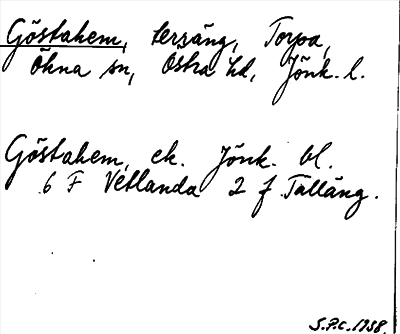 Göstahem, terräng, Torpa,
Ökna sn, Östra hd, Jönk. l.
Göstahem, ek. Jönk. bl.
6 F Vetlanda 2 f Tälläng.
S.P.C. 1958.